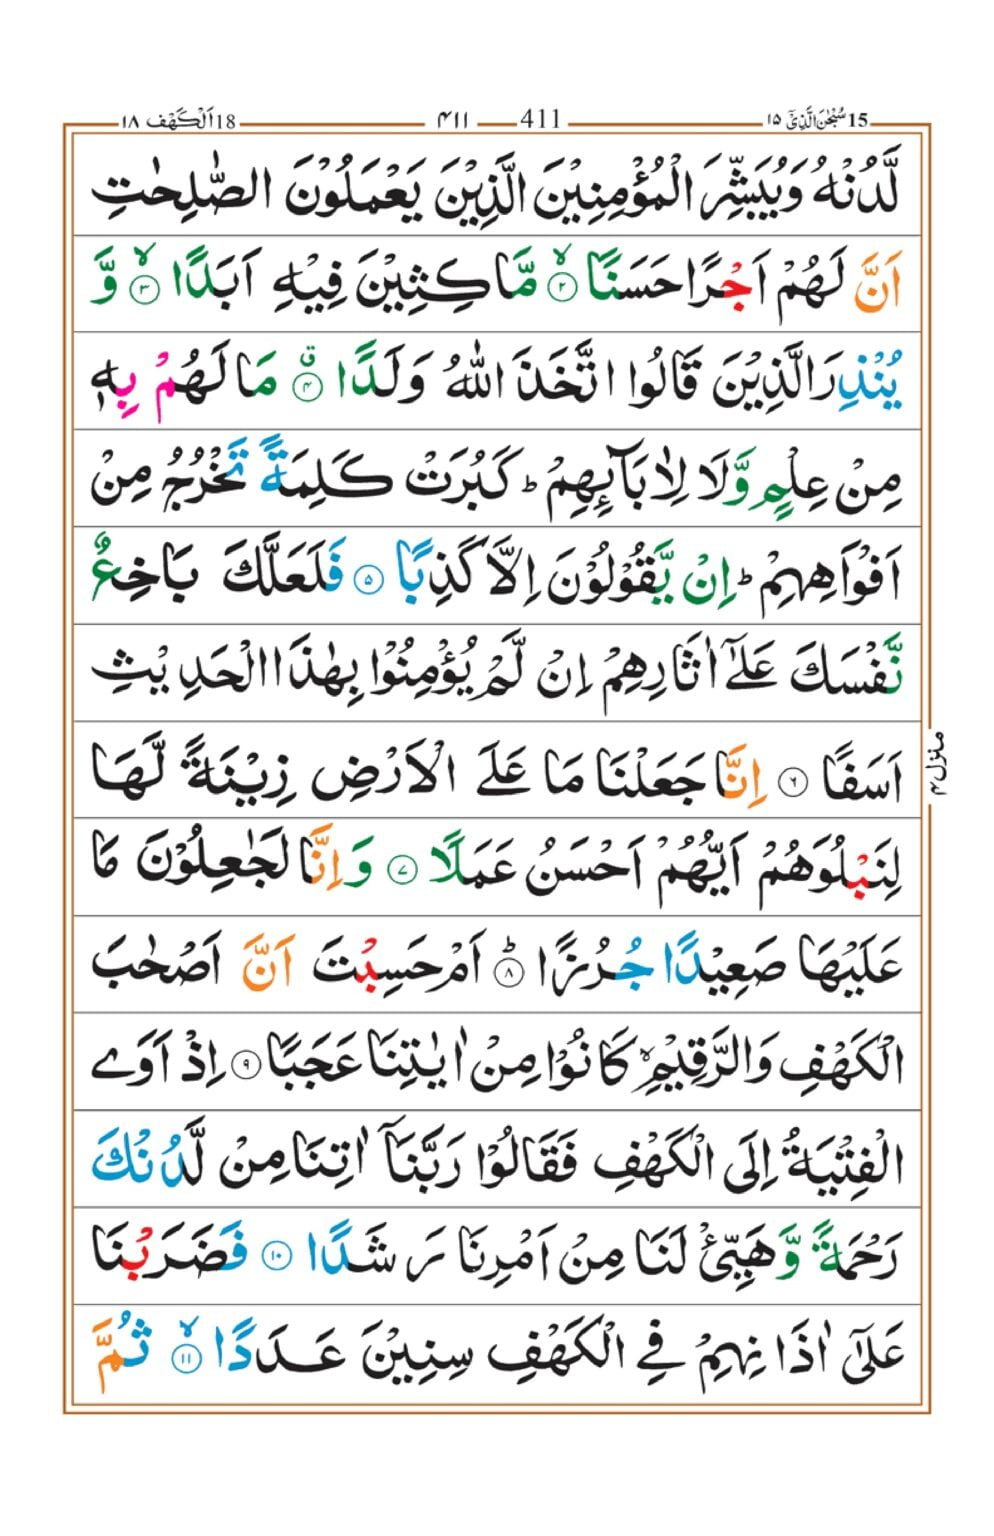 15 سُبْحٰنَ الَّذِیْۤ ۱۵ 411 ۴۱۱ 18 اَلْكَهْف ۱۸
لَّدُنْهُ وَیُبَشِّرَ الْمُؤْمِنِیْنَ الَّذِیْنَ یَعْمَلُوْنَ الصّٰلِحٰتِ
اَنَّ لَهُمْ اَجْرًا حَسَنًا ۙ۲ مَّاكِثِیْنَ فِیْهِ اَبَدًا ۙ۳ وَّ
یُنْذِرَ الَّذِیْنَ قَالُوا اتَّخَذَ اللّٰهُ وَلَدًا ۗ۴ مَا لَهُمْ بِهٖ
مِنْ عِلْمٍ وَّلَا لِاٰبَآىِٕهِمْ ؕ كَبُرَتْ كَلِمَةً تَخْرُجُ مِنْ
اَفْوَاهِهِمْ ؕ اِنْ یَّقُوْلُوْنَ اِلَّا كَذِبًا ۵ فَلَعَلَّكَ بَاخِعٌ
نَّفْسَكَ عَلٰۤی اٰثَارِهِمْ اِنْ لَّمْ یُؤْمِنُوْا بِهٰذَا الْحَدِیْثِ
اَسَفًا ۶ اِنَّا جَعَلْنَا مَا عَلَی الْاَرْضِ زِیْنَةً لَّهَا
لِنَبْلُوَهُمْ اَیُّهُمْ اَحْسَنُ عَمَلًا ۷ وَاِنَّا لَجٰعِلُوْنَ مَا
عَلَیْهَا صَعِیْدًا جُرُزًا ؕ۸ اَمْ حَسِبْتَ اَنَّ اَصْحٰبَ
الْكَهْفِ وَالرَّقِیْمِ ۙ كَانُوْا مِنْ اٰیٰتِنَا عَجَبًا ۹ اِذْ اَوَی
الْفِتْیَةُ اِلَی الْكَهْفِ فَقَالُوْا رَبَّنَاۤ اٰتِنَا مِنْ لَّدُنْكَ
رَحْمَةً وَّهَیِّئْ لَنَا مِنْ اَمْرِنَا رَشَدًا ۱۰ فَضَرَبْنَا
عَلٰۤی اٰذَانِهِمْ فِی الْكَهْفِ سِنِیْنَ عَدَدًا ۙ۱۱ ثُمَّ
منزل ۴